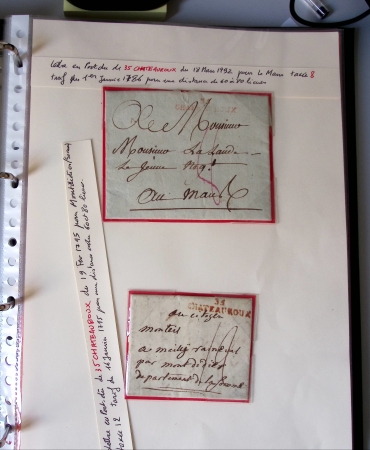 Lettre en Port dû de 35 CHATEAUROUX du 18 Mars 1792 pour Le Mans taxée 8
tarif du 1er Janvier 1786 pour une distance de 60 à 80 lieues
A Monsieur
Monsieur La Lande
Le Jeune
au mans
Lettre en Port dû de 35 CHATEAUROUX du 19 Fev 1795 pour
tarif du 16 Janvier 1795 pour une distance entre 60 et 80 lieues
taxée 12
35
CHATEAUROUX
au citoyen
montets
a
par mont de dier
departement de la somme